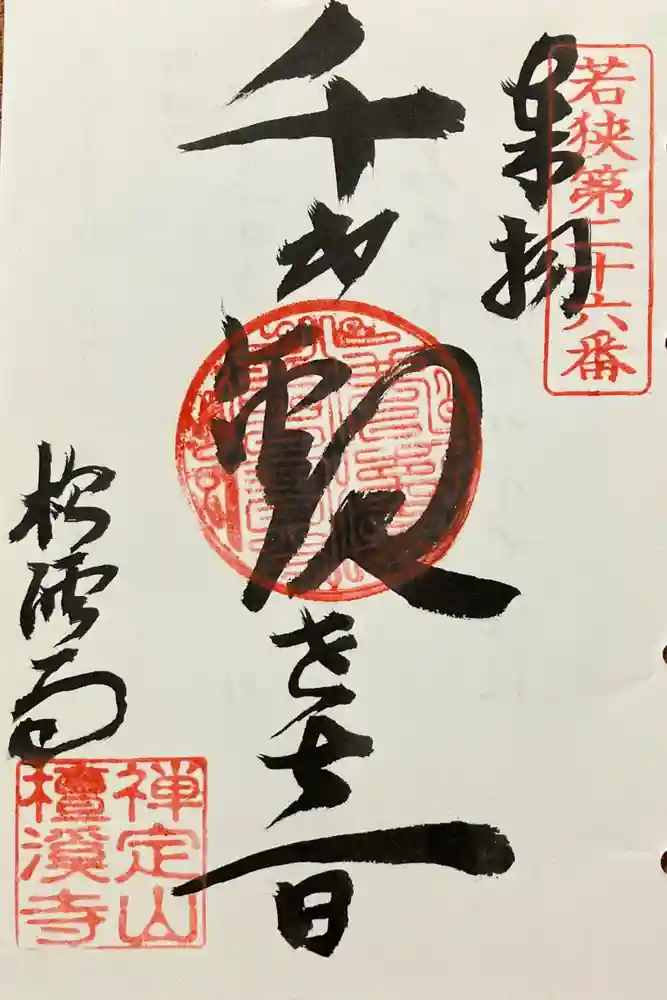 奉拝
若狭第二十六番
千手観世音
檀溪寺
禅定山
檀溪寺